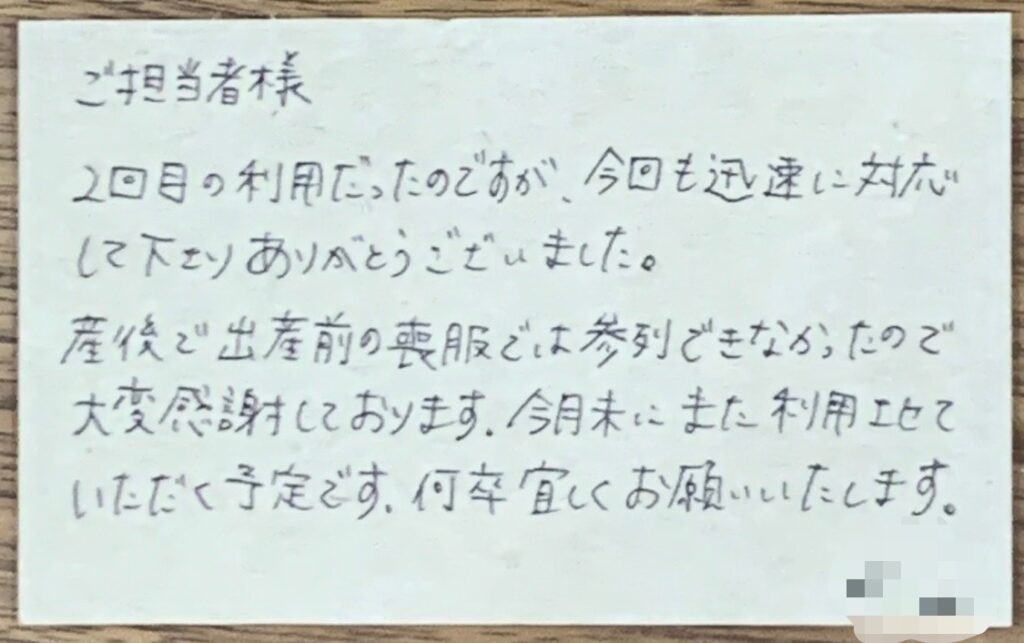 ご担当者様
2回目の利用だったのですが、今回も迅速に対応
して下さりありがとうございました。
産後で出産前の喪服では参列できなかったので
大変感謝しております。今月末にまた利用させて
いただく予定です。何卒宜しくお願いいたします。